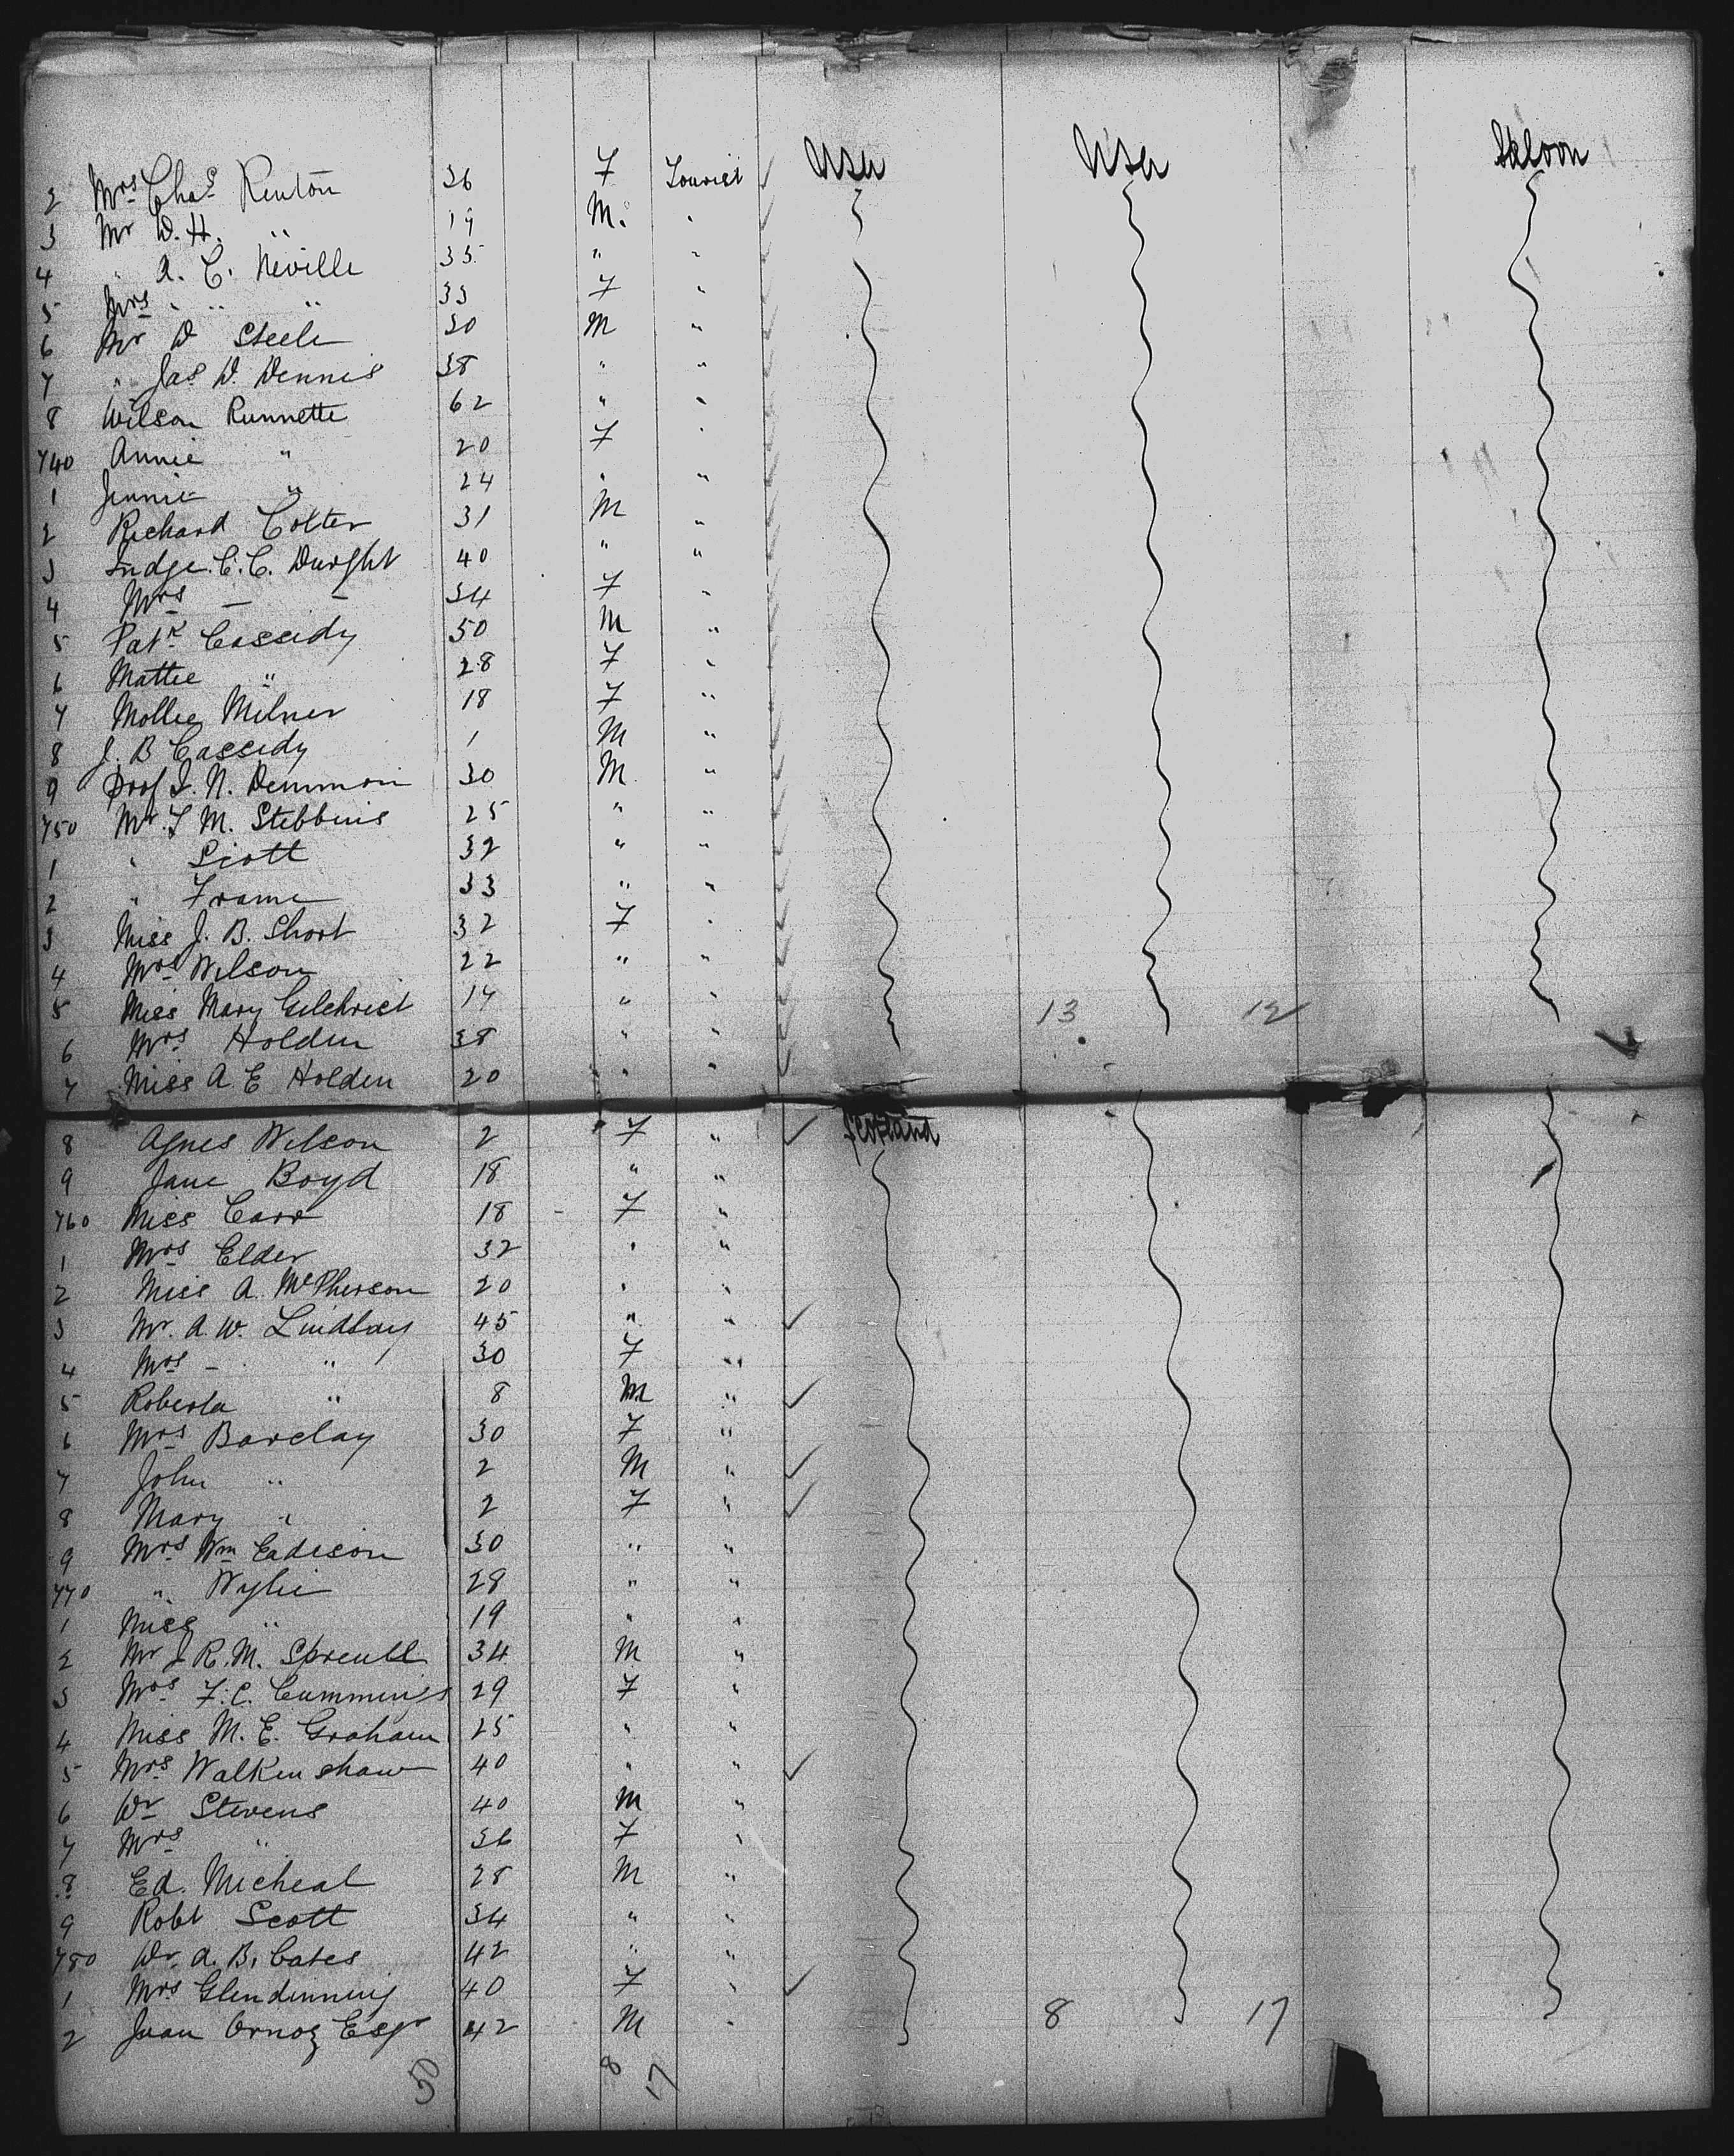 2 Mrs Chas Renton 36 F Tourist USA USA Saloon
3 Mr D. H. " 19 M. "
4 " A. C. Neville 35 " "
5 Mrs " " " 33 F "
6 Mr D Steele 30 M "
7 " Jas D. Dennis 38 " "
8 Wilson Runnette 62 " "
740 Annie " 20 F "
1 Jennie " 24 " "
2 Richard Cotter 31 M "
3 Judge C. C. Dwight 40 " "
4 Mrs — — 34 F "
5 Patk Cassidy 50 M "
6 Mattie " 28 F "
7 Mollie Milner 18 F "
8 J. B Cassidy 1 M "
9 Prof I. N. Demmon 30 M "
750 Mr. F M. Stebbins 25 " "
1 " Scott 32 " "
2 " Frame 33 " "
3 Miss J. B. Short 32 F "
4 Mrs Wilson 22 " "
5 Miss Mary Gilchrist 17 " " 13 12
6 Mrs Holden 38 " "
7 Miss A E Holden 20 " "
8 Agnes Wilson 2 F " Scotland
9 Jane Boyd 18 " "
760 Miss Carr 18 - F "
1 Mrs Elder 32 " "
2 Miss A. McPherson 20 " "
3 Mr. A. W. Lindsay 45 " "
4 Mrs - " 30 F "
5 Roberta " 8 M "
6 Mrs Barclay 30 F "
7 John " 2 M "
8 Mary " 2 F "
9 Mrs Wm Eadison 30 " "
770 " Wylie 28 " "
1 Miss " 19 " "
2 Mr J R. M. Spreull 34 M "
3 Mrs F. C. Cummings 29 F "
4 Miss M. E. Graham 25 " "
5 Mrs Walkenshaw 40 " "
6 Dr Stevens 40 M "
7 Mrs " 36 F "
8 Ed. Micheal 28 M "
9 Robt Scott 34 " "
780 Dr. A. B. Cates 42 " "
1 Mrs Glendinning 40 F "
2 Juan Esqr 42 M " 8 17
50 8 17